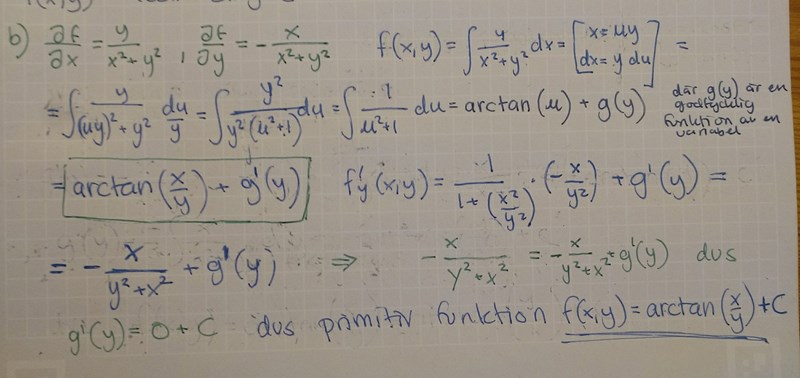 b) ∂f/∂x = y/(x²+y²) , ∂f/∂y = - x/(x²+y²) f(x,y) = ∫ y/(x²+y²) dx = [x=uy dx=y du] =
= ∫ y/((uy)²+y²) du/y = ∫ y²/(y²(u²+1)) du = ∫ 1/(u²+1) du = arctan(u) + g(y) där g(y) är en godtycklig funktion av en variabel
= arctan(x/y) + g'(y) f'y(x,y) = 1/(1+(x²/y²)) · (-x/y²) + g'(y) =
= - x/(y²+x²) + g'(y) ⇒ - x/(y²+x²) = - x/(y²+x²) + g'(y) dvs
g'(y) = 0 + C dvs primitiv funktion f(x,y) = arctan(x/y) + C